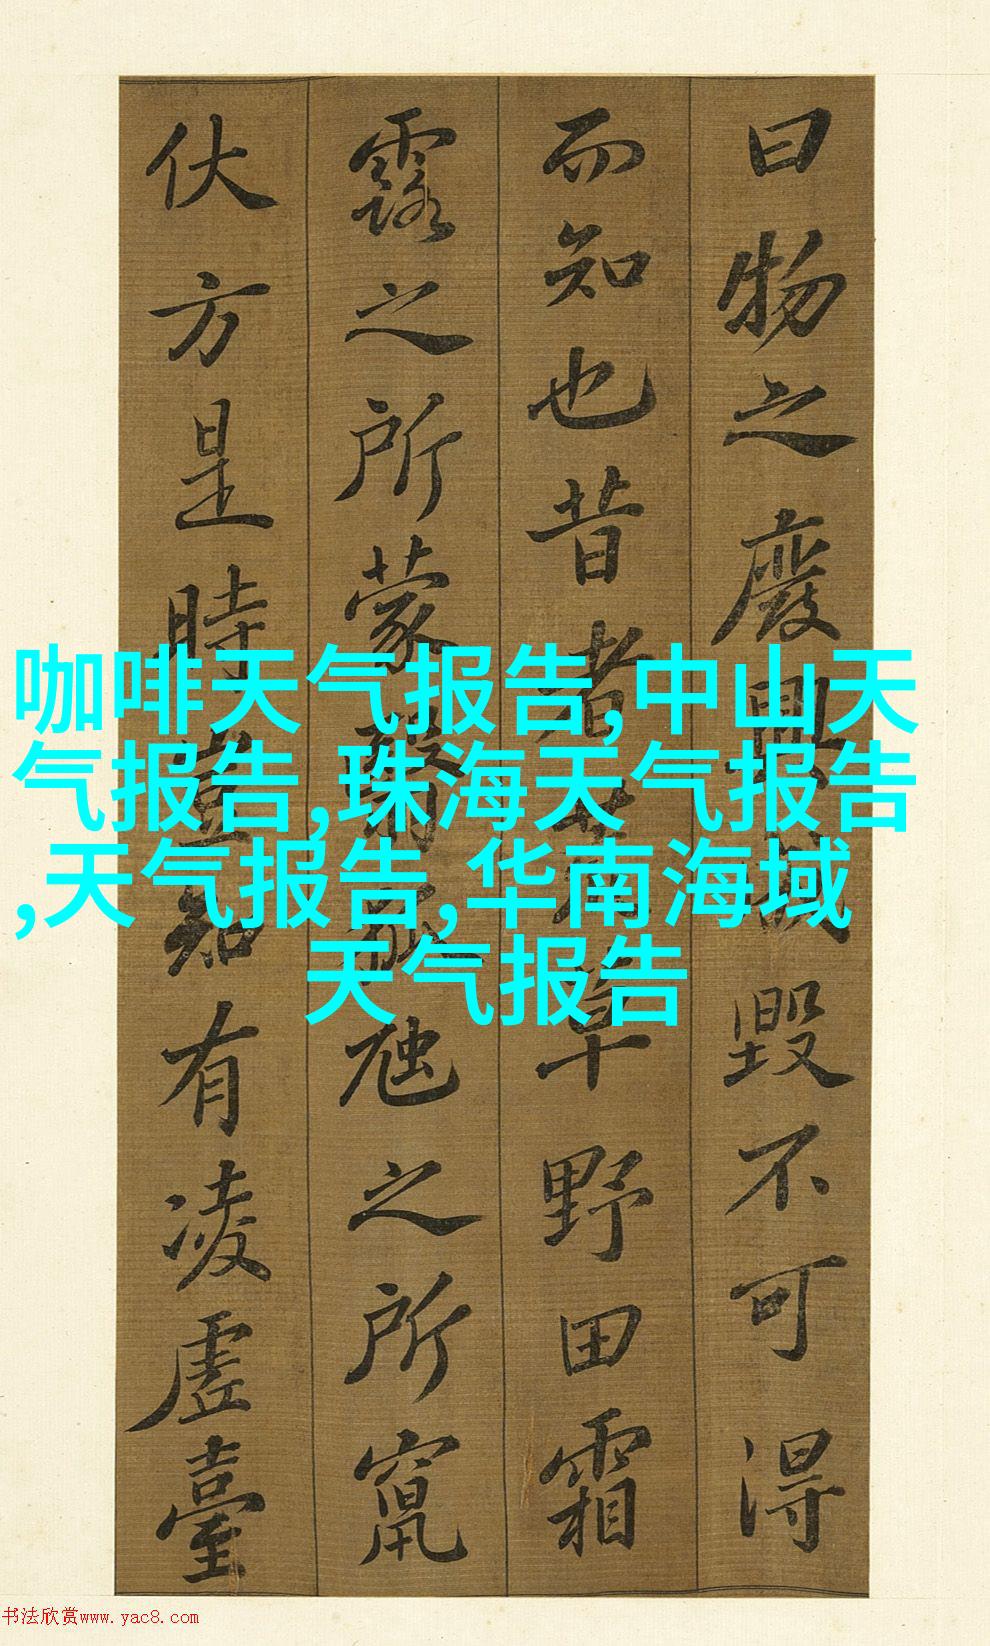 曰物之廢興成毀不可得
而知也昔者荒草野田霜
露之所蒙翳狐虺之所竄
伏方是時豈知有凌虛臺
咖啡天气报告,中山天
气报告,珠海天气报告
,天气报告,华南海域
天气报告
书法欣赏www.yac8.com